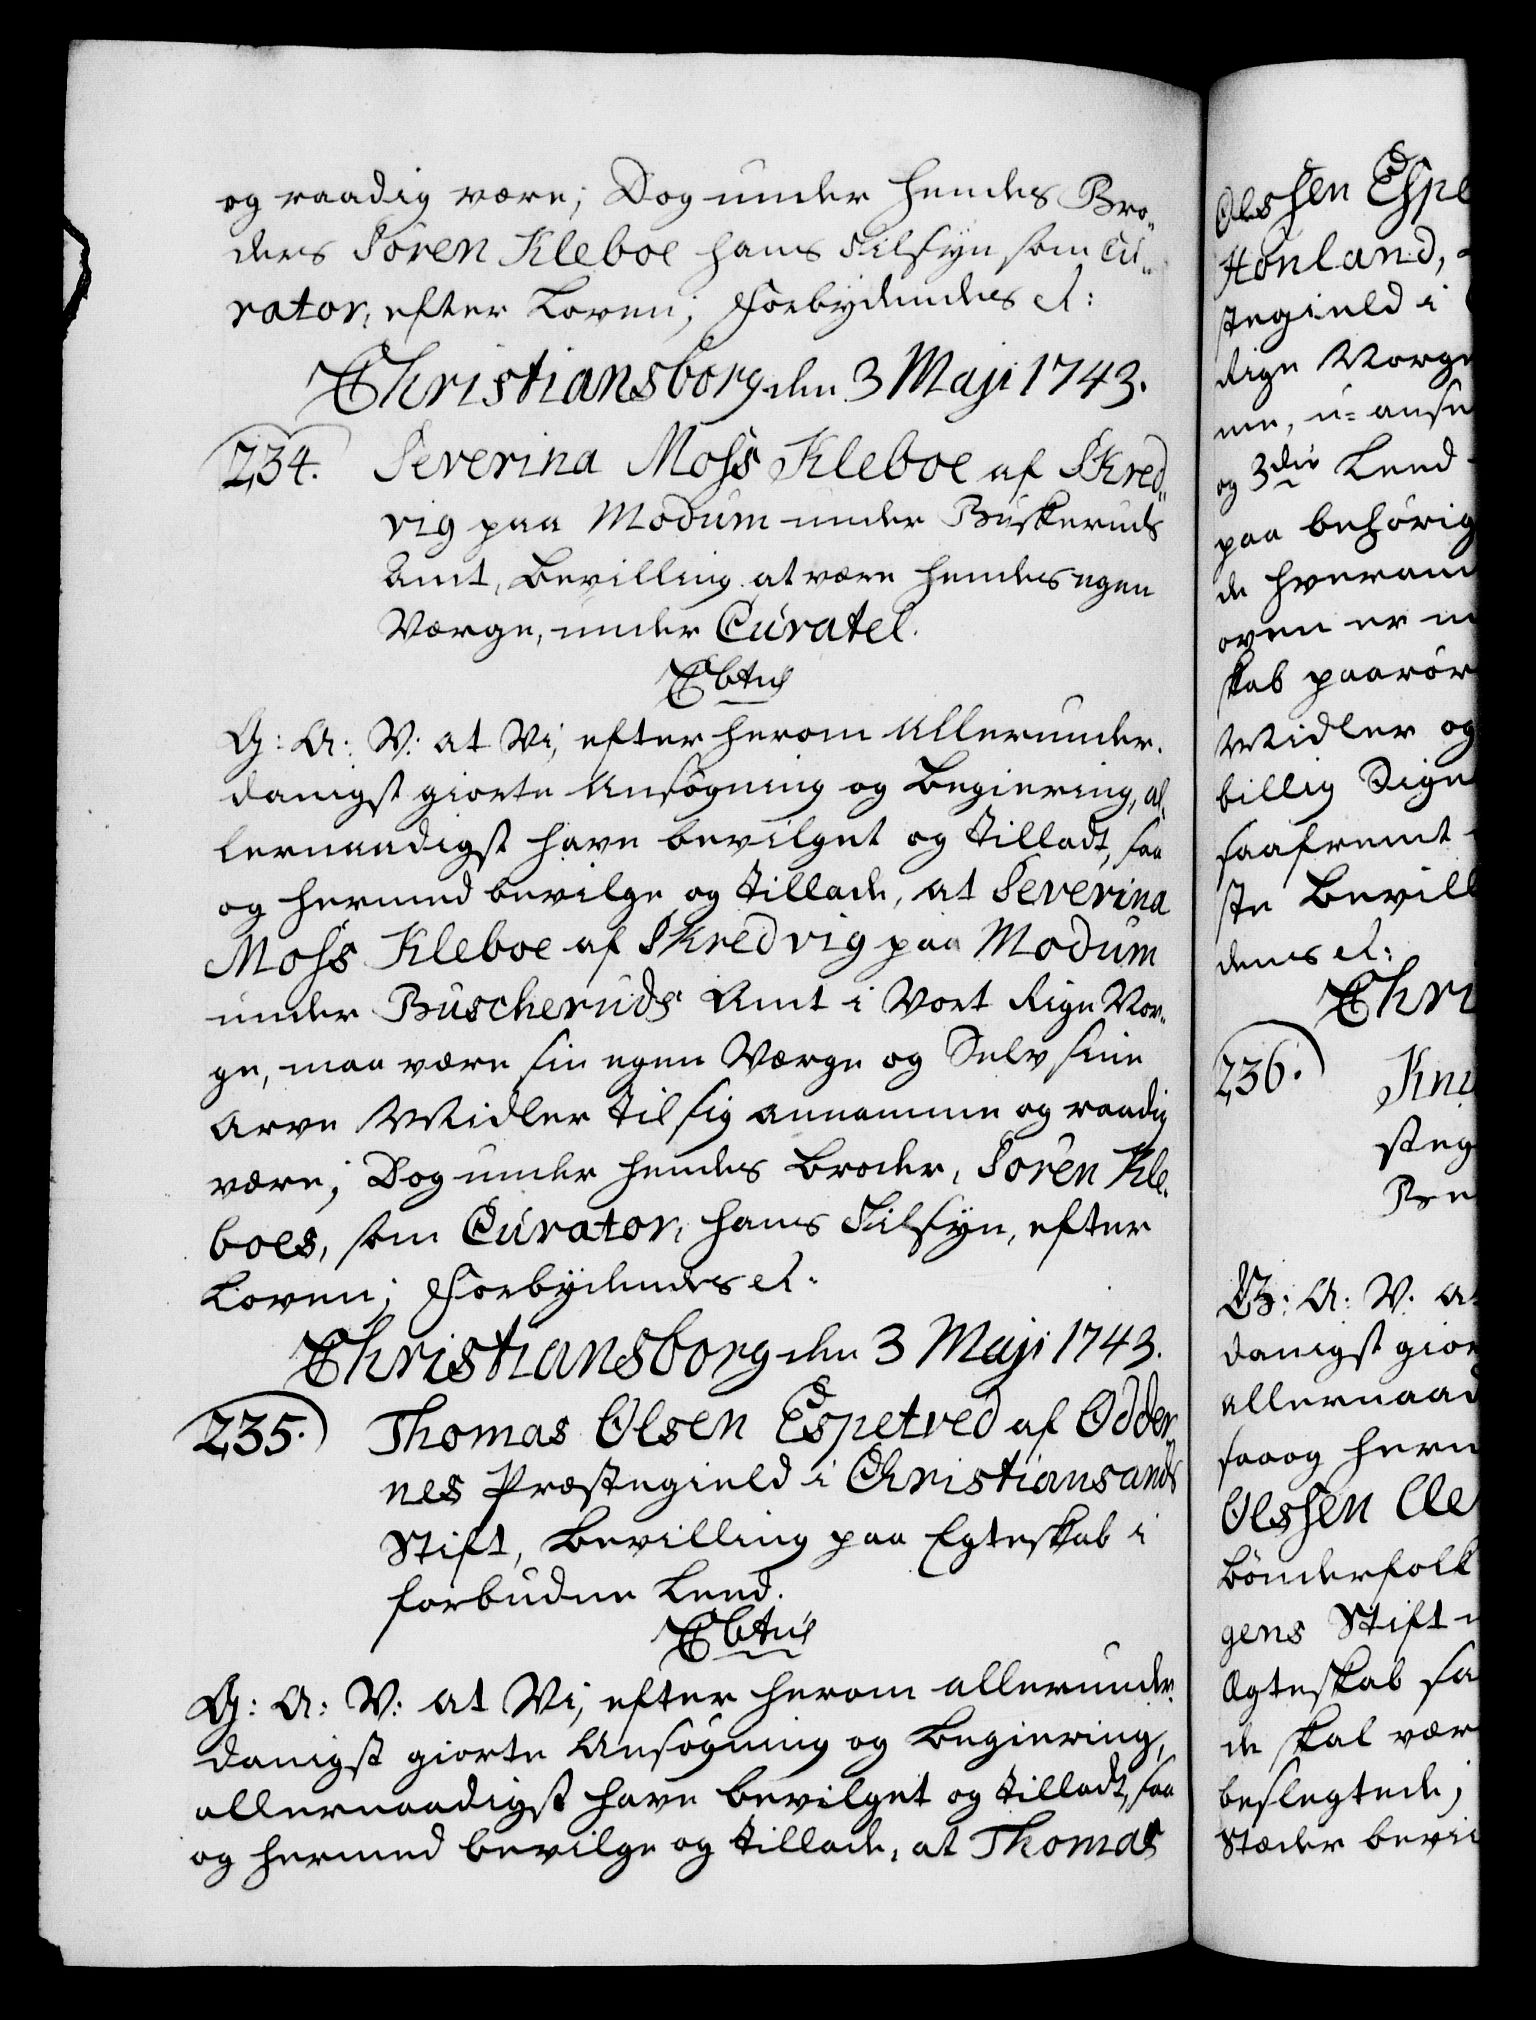 og raadig være; Dog under hendes Bro„
ders Sören Kleboe hans Tilsyn som Cu„
rator, efter Loven; Forbydendes etc:
Christiansborg den 3 Maji 1743.
234. Severina Moss Kleboe af Skred„
vig paa Modum under Buskeruds
Amt, Bevilling at være hendes egen
Værge, under Curatel.
G: A: V: at Vi, efter herom Allerunder„
danigst giorte Ansøgning og Begiering, al„
lernaadigst have bevilget og tilladt, saa
og hermed bevilge og tillade, at Severina
Moss Kleboe af Skredvig paa Modum
under Buscheruds Amt i Vort Rige Nor„
ge, maa være sin egen Værge og Selv sine
Arve Midler til sig annamme og raadig
være; Dog under hendes Broder, Sören Kle„
boes, som Curator, hans Tilsyn, efter
Loven; Forbydendes etc:
Christiansborg den 3 Maji 1743.
235. Thomas Olsen Espetved af Odder„
nes Præstegield i Christiansands
Stift, Bevilling paa Egteskab i
forbudne Leed.
G: A: V: at Vi, efter herom allerunder„
danigst giorte Ansøgning og Begiering,
allernaadigst have bevilget og tilladt, saa
og hermed bevilge og tillade, at Thomas
Olssen Espe
Hönland,
stegield i
Rige Norge
og 3die Leed
paa behörig
de hveran
oven er
skab paarör
Midler og
billig Sign
saafremt
ste Bevill
dens etc:
Chri
236. Knu
steg
Be
G: A: V: a
danigst gior
allernaad
saa og herm
Olssen
Bönderfolk
gens Stift
Ægteskab
de skal vær
beslegtede;
Stæder bevi